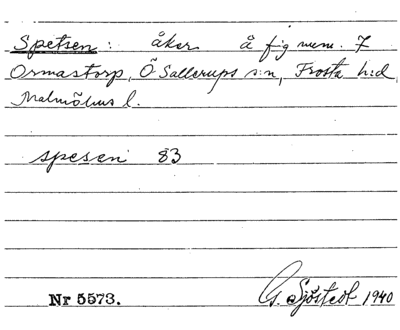 Spetsen: åker å fig mem. 7
Ormastorp, Ö Sallerups s:n, Frosta h:d,
Malmöhus l.
spesen 83
Nr 5573.
G. Sjöstedt 1940